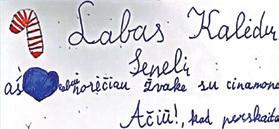 Labas Kalėdų
Seneli
aš norėčiau žvakę su cinamono
Ačiū!, kad perskaitė